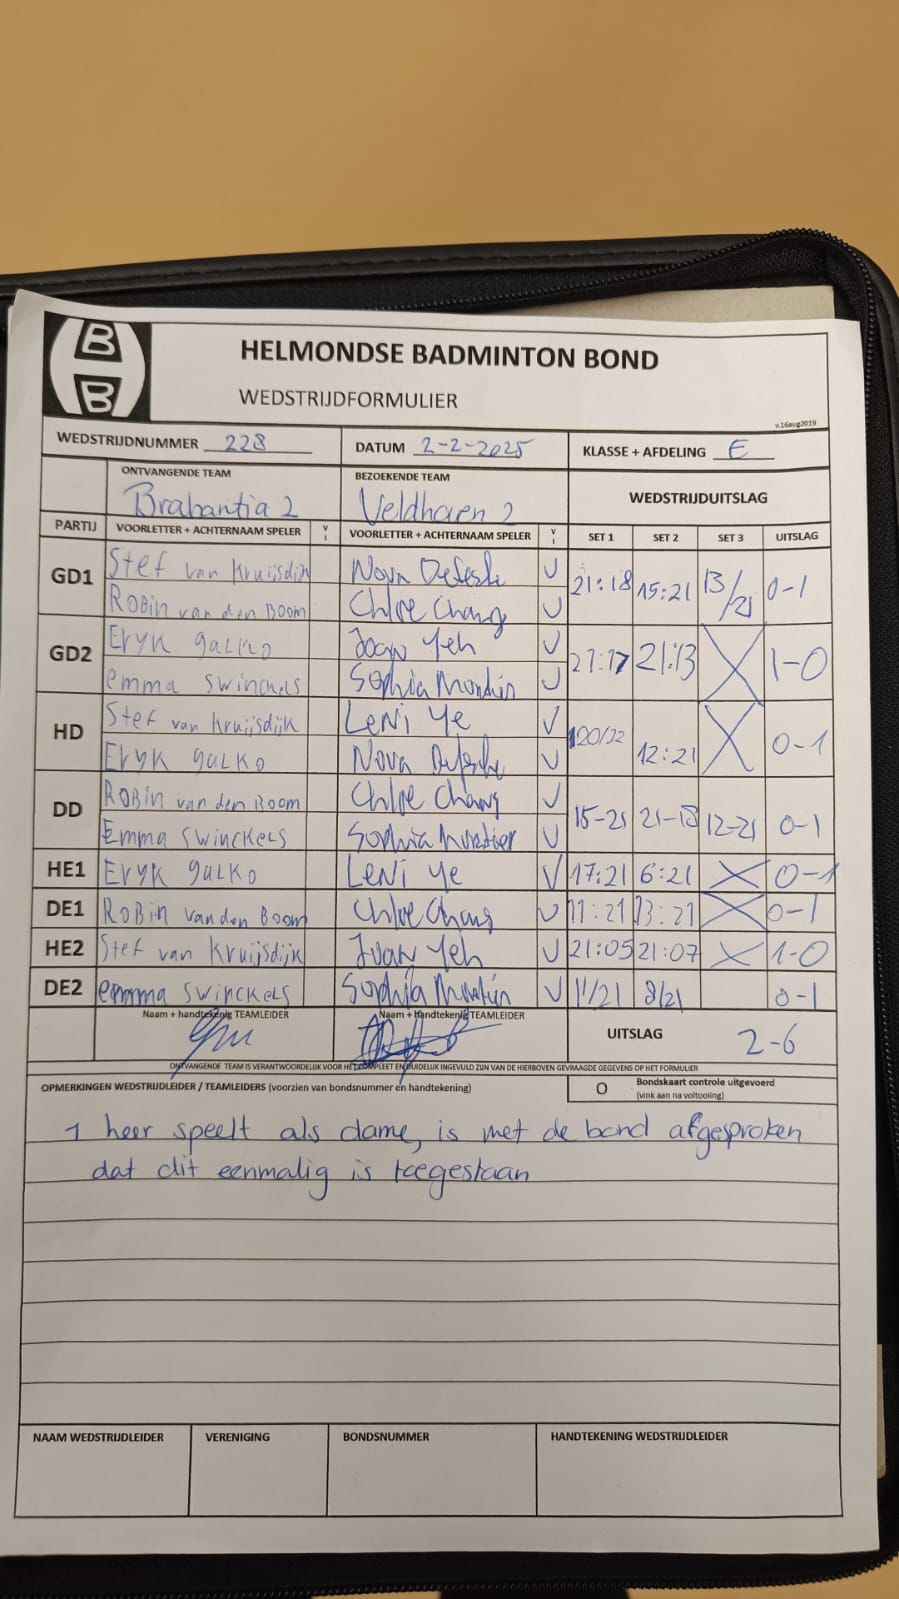 B
B
HELMONDSE BADMINTON BOND
WEDSTRIJDFORMULIER
v.16aug2019
WEDSTRIJDNUMMER 228 DATUM 2-2-2025 KLASSE + AFDELING E
ONTVANGENDE TEAM BEZOEKENDE TEAM WEDSTRIJDUITSLAG
Brabantia 2 Veldhoven 2
PARTIJ VOORLETTER + ACHTERNAAM SPELER V I VOORLETTER + ACHTERNAAM SPELER V I SET 1 SET 2 SET 3 UITSLAG
GD1 Stef van Kruijsdijk Nova V 21:18 15:21 13/21 0-1
Robin van den Boom Chloe Chang V
GD2 Eryk Galko Yeh V 21:17 21:13 X 1-0
emma swinckels Sophia V
HD Stef van Kruijsdijk Leni Ye V 20/22 12:21 X 0-1
Eryk Galko Nova V
DD Robin van den Boom Chloe Chang V 15-21 21-18 12-21 0-1
Emma Swinckels Sophia V
HE1 Eryk Galko Leni Ye V 17:21 6:21 X 0-1
DE1 Robin van den Boom Chloe Chang V 11:21 13:21 X 0-1
HE2 Stef van Kruijsdijk Yeh V 21:05 21:07 X 1-0
DE2 emma swinckels Sophia V 11/21 8/21 0-1
Naam + handtekenig TEAMLEIDER Naam + handtekenig TEAMLEIDER UITSLAG 2-6
ONTVANGENDE TEAM IS VERANTWOORDELIJK VOOR HET COMPLEET EN DUIDELIJK INGEVULD ZIJN VAN DE HIERBOVEN GEVRAAGDE GEGEVENS OP HET FORMULIER
OPMERKINGEN WEDSTRIJDLEIDER / TEAMLEIDERS (voorzien van bondsnummer en handtekening) O Bondskaart controle uitgevoerd
(vink aan na voltooiing)
1 heer speelt als dame, is met de bond afgesproken
dat dit eenmalig is toegestaan
NAAM WEDSTRIJDLEIDER VERENIGING BONDSNUMMER HANDTEKENING WEDSTRIJDLEIDER